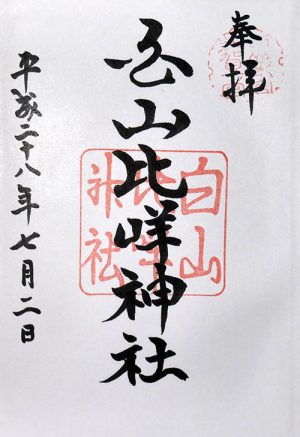 奉拝
白山比咩神社
平成二十八年七月二日
白山
比咩
神社